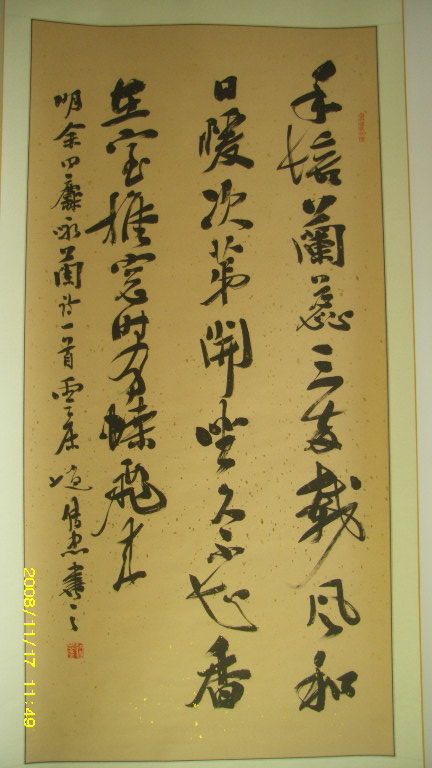 手培蘭蕊三支栽風和
日暖次第開坐久不知香
在室推窗時有蝶飛來
明余同麓咏蘭詩一首雲庄書之
2008/11/17 11:49